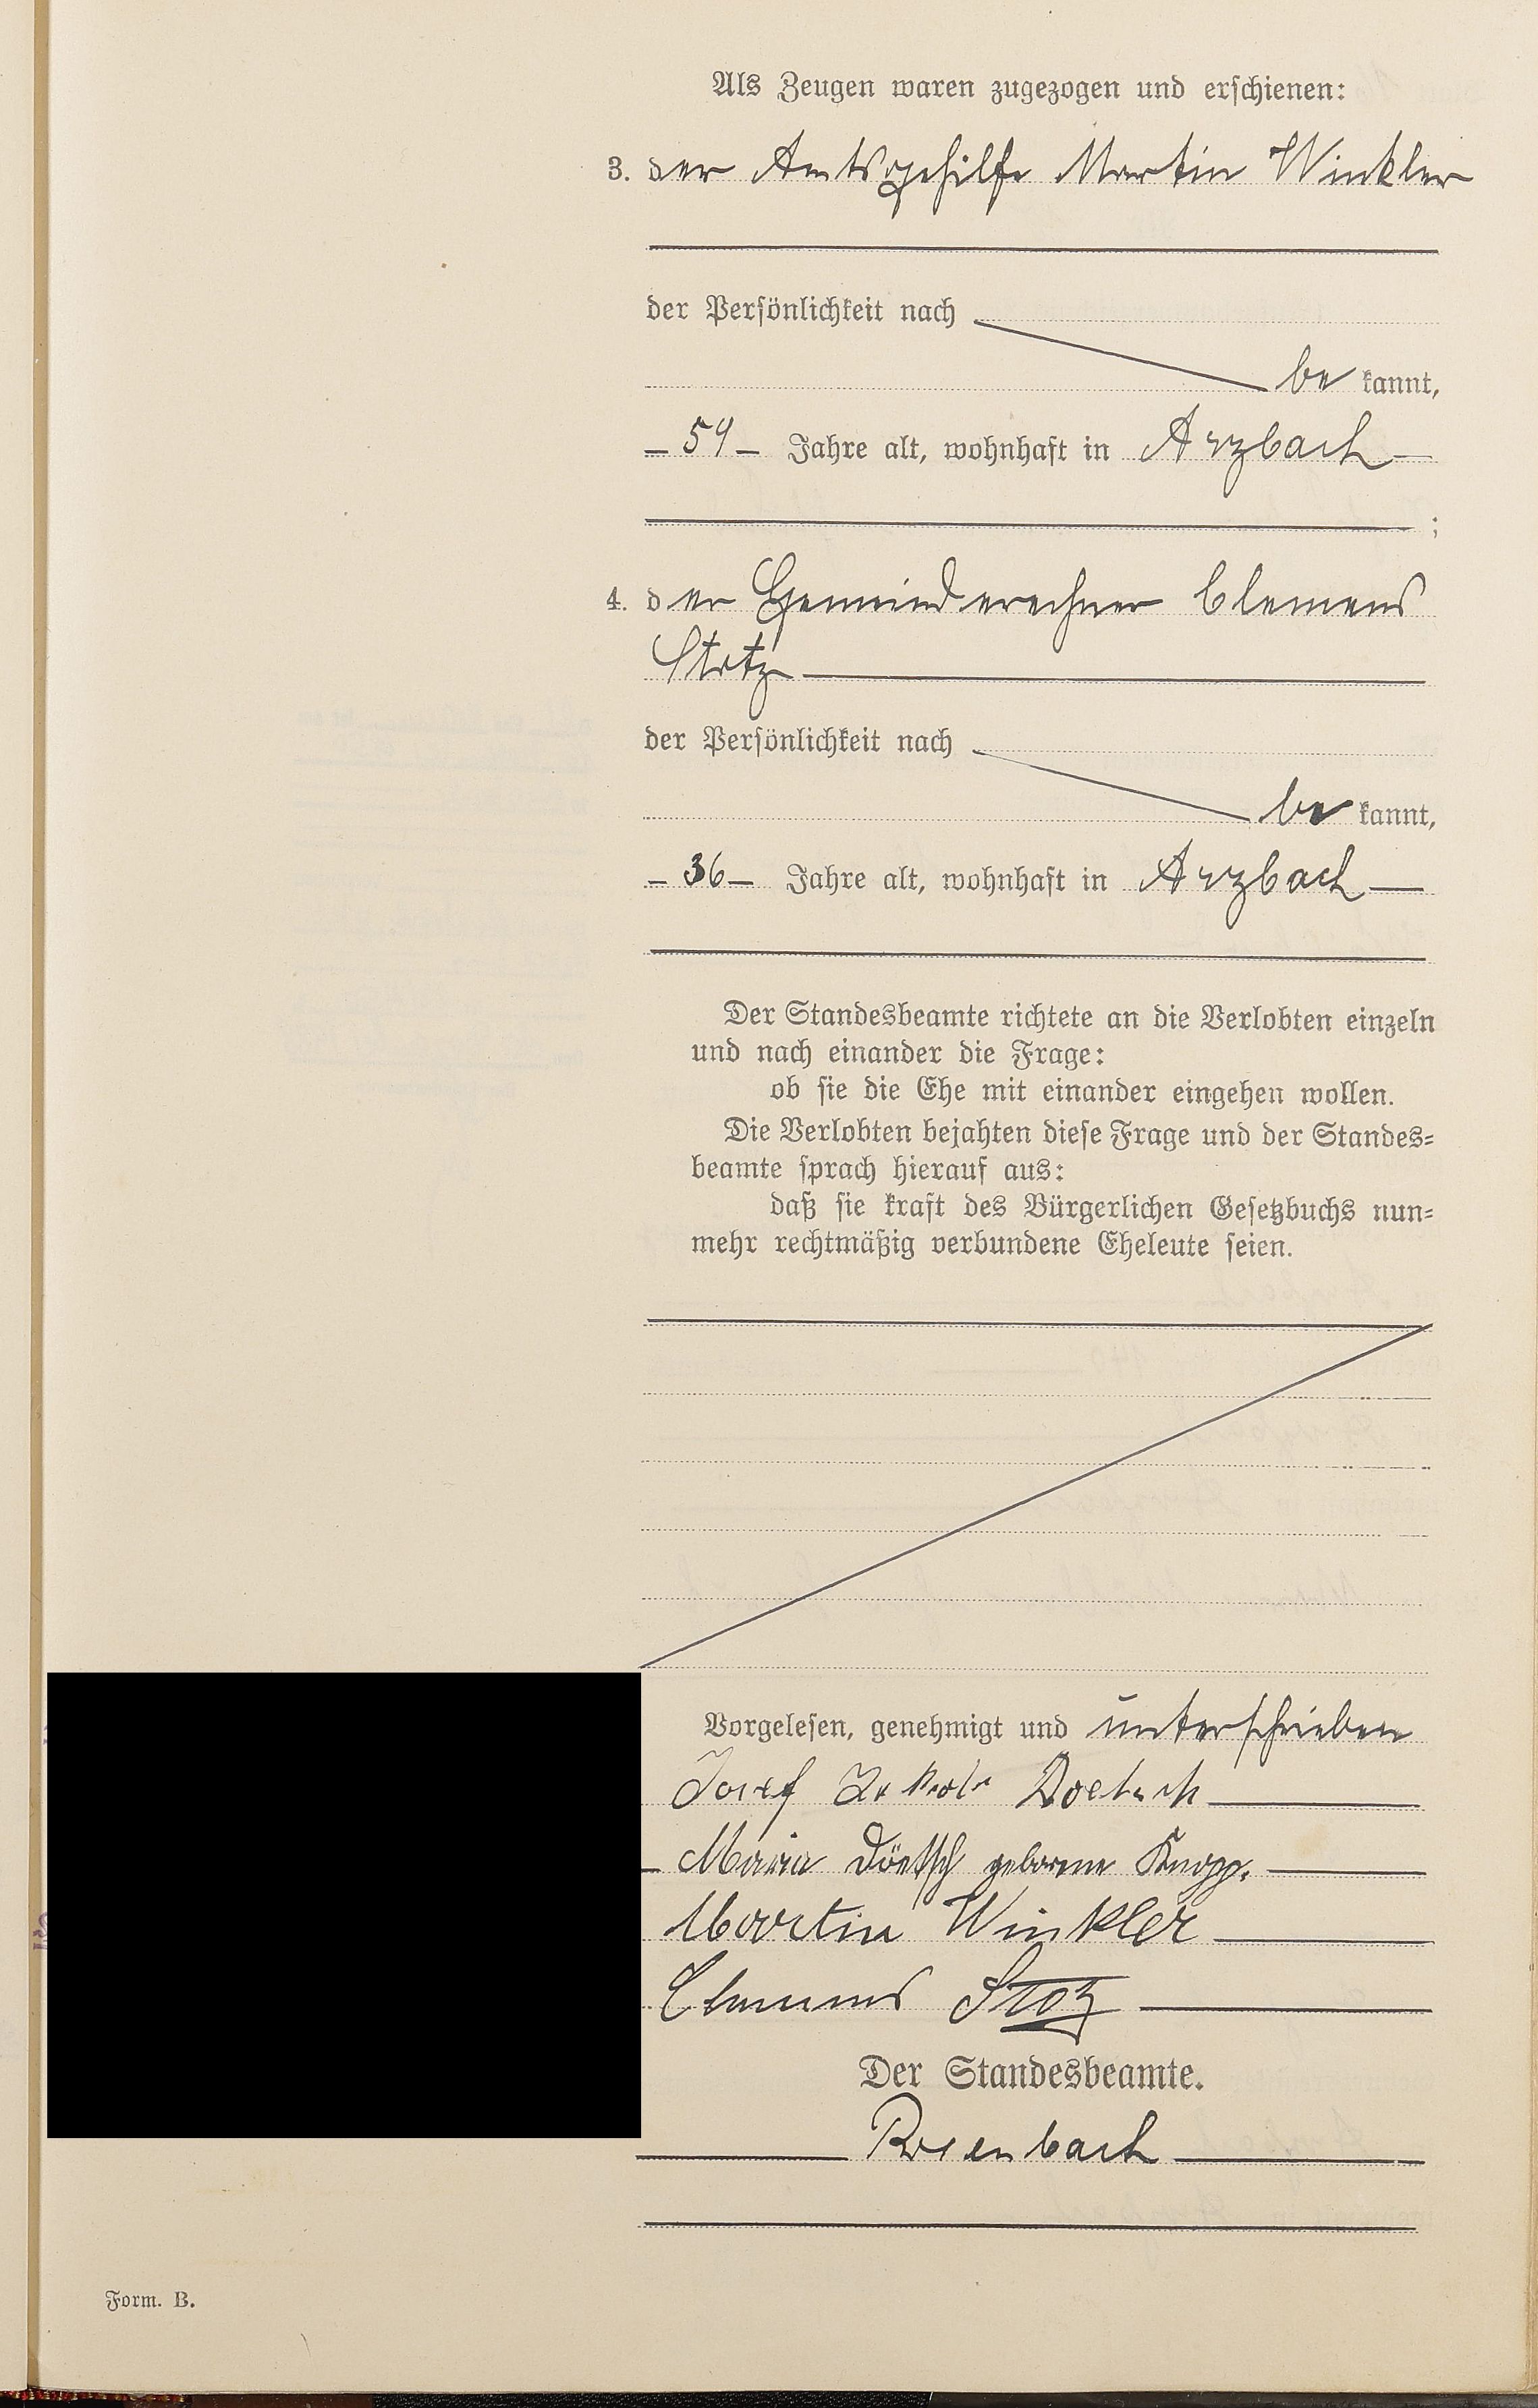 Als Zeugen waren zugezogen und erschienen:
3. der Amtsgehilfe Martin Winkler
der Persönlichkeit nach
be kannt,
59 Jahre alt, wohnhaft in Arzbach
;
4. der Gemeinderechner Clemens
Stotz
der Persönlichkeit nach
be kannt,
36 Jahre alt, wohnhaft in Arzbach
Der Standesbeamte richtete an die Verlobten einzeln
und nach einander die Frage:
ob sie die Ehe mit einander eingehen wollen.
Die Verlobten bejahten diese Frage und der Standes-
beamte sprach hierauf aus:
daß sie kraft des Bürgerlichen Gesetzbuchs nun-
mehr rechtmäßig verbundene Eheleute seien.
Vorgelesen, genehmigt und unterschrieben
Josef Jakob Doetsch
Maria Döetsch geborene Knopp.
Martin Winkler
Clemens Stotz
Der Standesbeamte.
Rosenbach
Form. B.